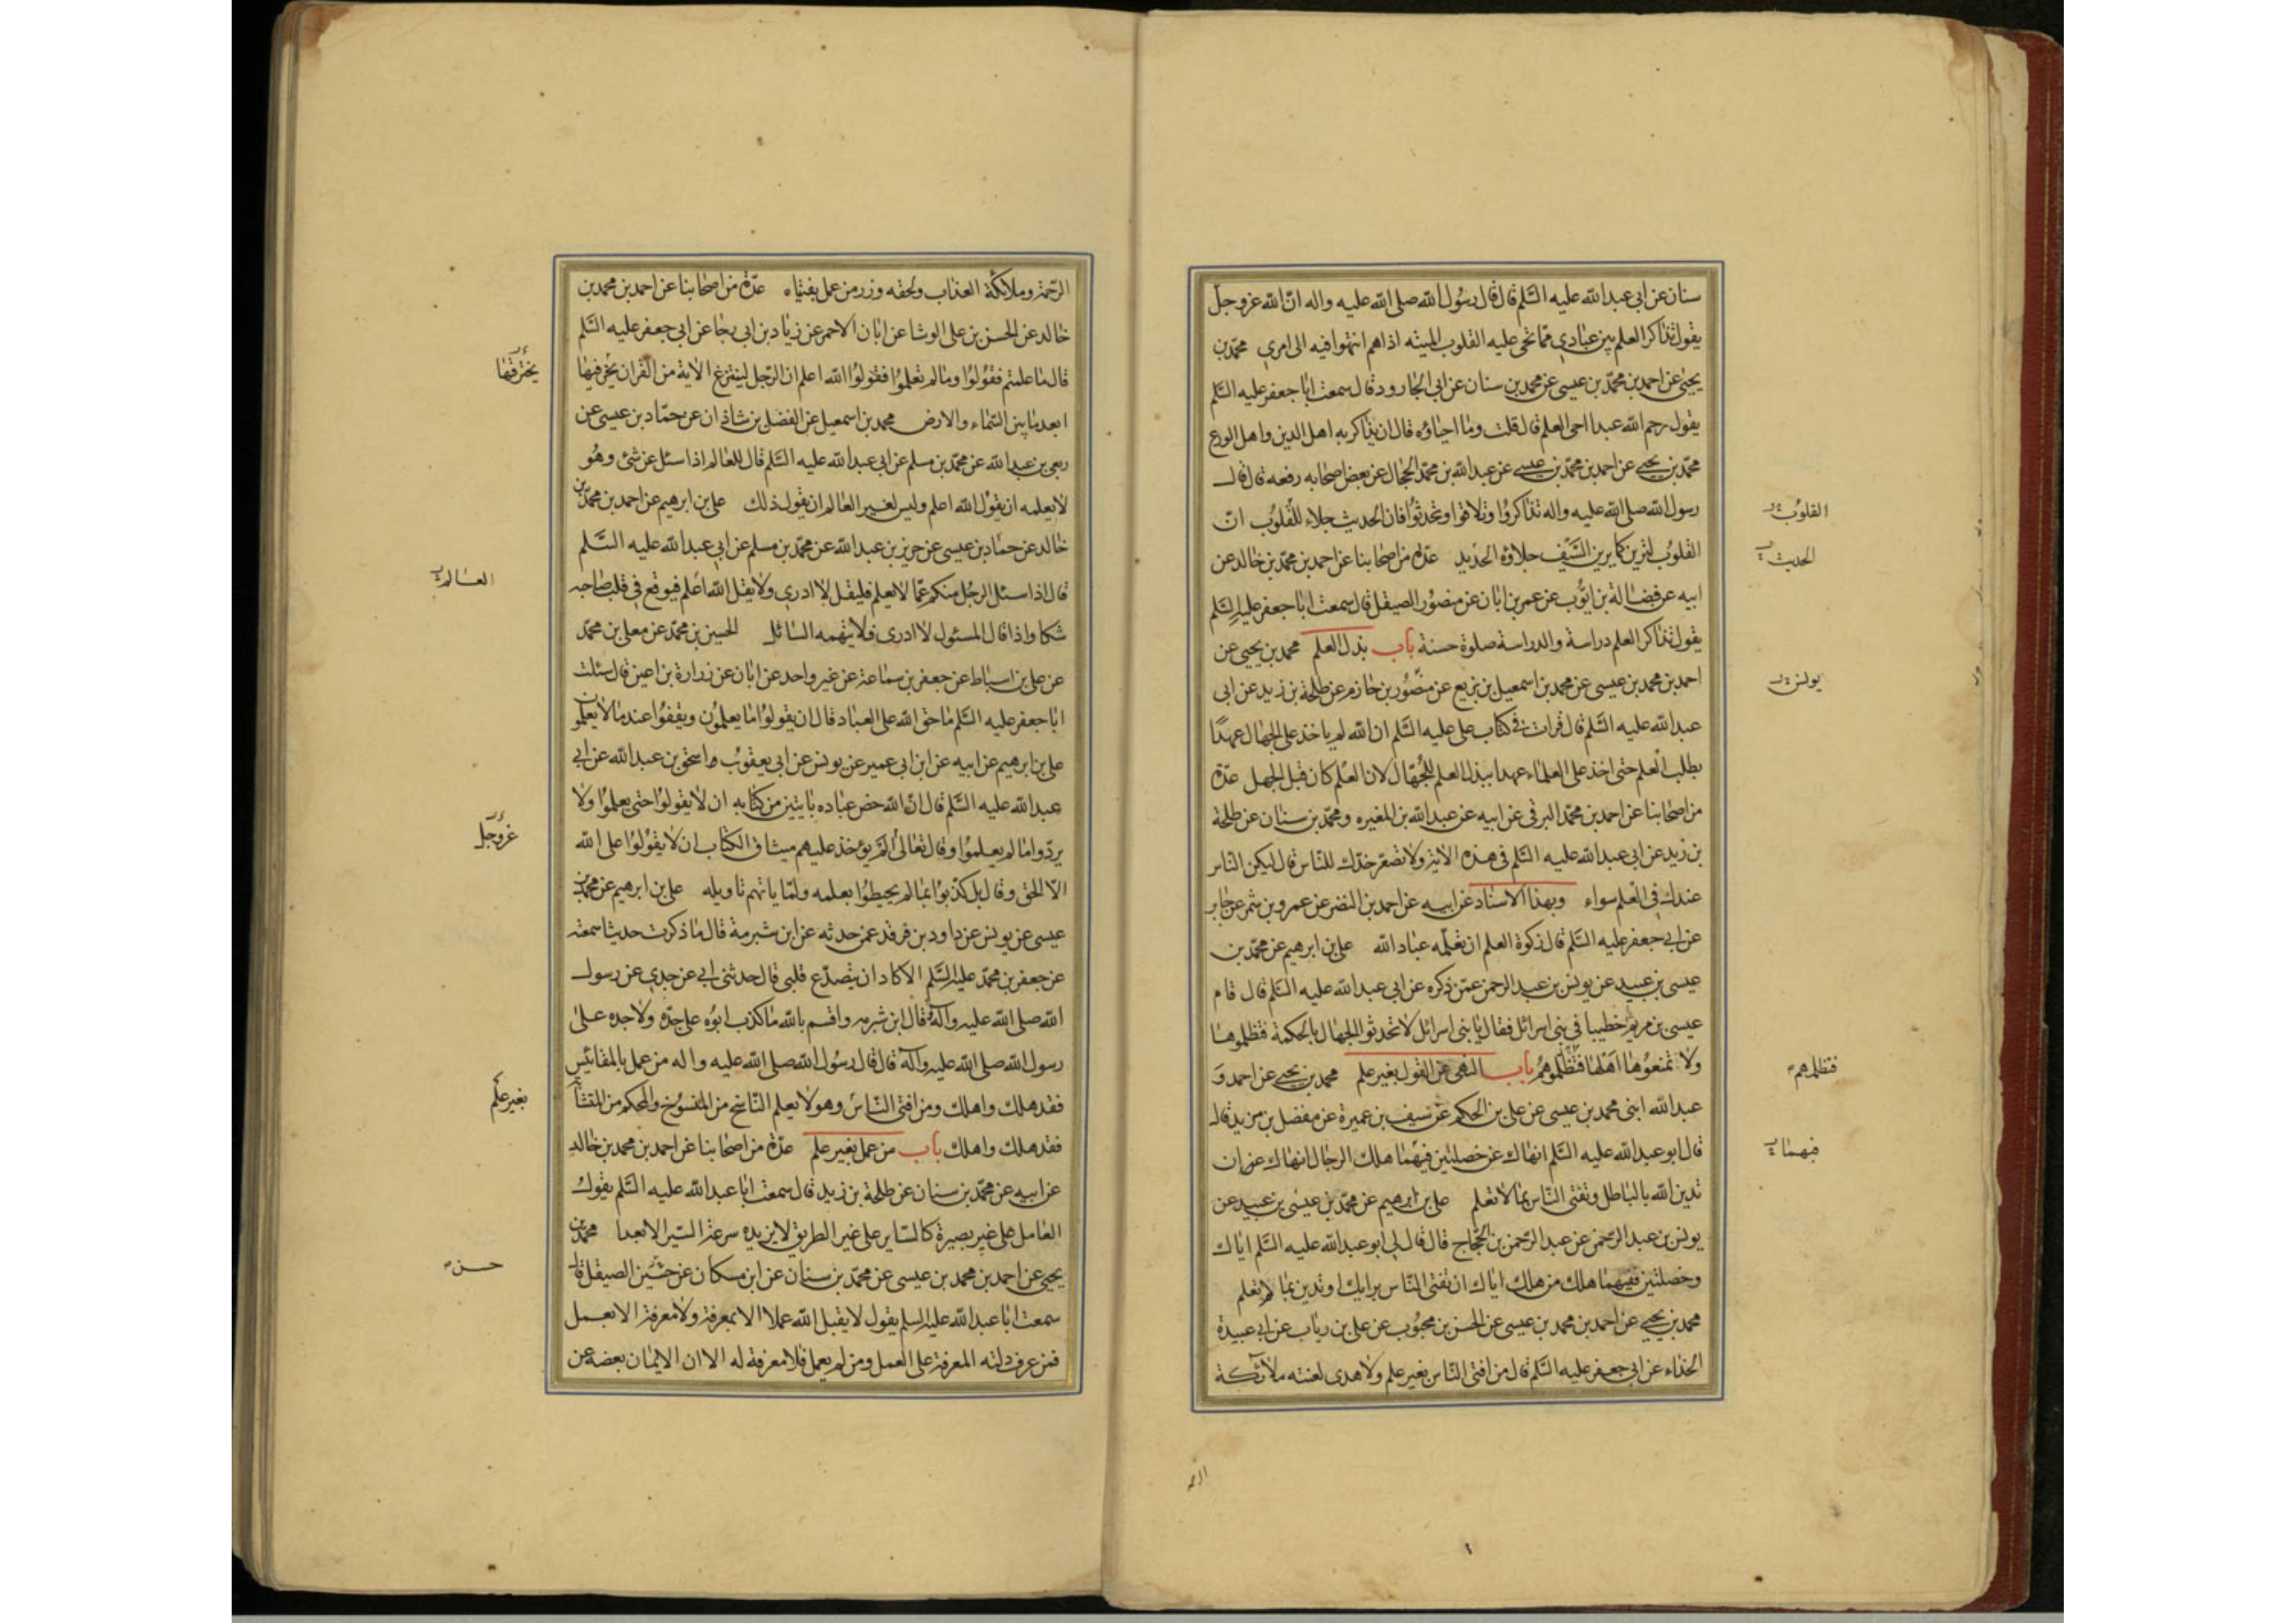 سنان عن ابى عبد الله عليه السّلم قال قال رسُول الله صلى الله عليه واله انّ الله عزوجلّ
يقول تذاكر العلم بين عبادي ممّا تحيى عليه القلوب الميته اذا هم انتهوا فيه الى امرى محمّد بن
يحيى عن احمد بن محمّد بن عيسى عن محمد بن سنان عن ابى الجارود قال سمعت ابا جعفر عليه السّلم
يقول رحم الله عبدا احيى العلم قال قلت وما احياؤه قال ان يذاكر به اهل الدين واهل الورع
محمّد بن يحيى عن احمد بن محمّد بن عيسى عن عبد الله بن محمّد الحجال عن بعض اصحابه رفعه قال قال
رسول الله صلى الله عليه واله تذاكروُا وتلاقوا وتحدثوُا فان الحديث جلاء للقلوُب انّ
القلوُب لترين كما يرين السَّيف جلاؤه الحديد عدّة من اصحابنا عن احمد بن محمّد بن خالد عن
ابيه عن فضالة بن ايّوب عن عمر بن ابان عن منصوُر الصيقل قال سمعت ابا جعفر عليه السّلم
يقول تذاكر العلم دراسة والدراسة صلوة حسنة باب بذل العلم محمد بن يحيى عن
احمد بن محمد بن عيسى عن محمد بن اسمعيل بن بزيع عن منصُور بن حازم عن طلحة بن زيد عن ابى
عبد الله عليه السَّلم قال قرات فى كتاب على عليه السَّلم ان الله لم ياخذ على الجهال عهدًا
بطلب العلم حتى اخذ على العلماء عهدا ببذل العلم للجُهّال لان العلم كان قبل الجهل عدّة
من اصحابنا عن احمد بن محمّد البرقى عن ابيه عن عبد الله بن المغيره ومحمّد بن سنان عن طلحة
بن زيد عن ابى عبد الله عليه السّلم فى هذه الاية ولا تصعّر خدّك للنّاس قال ليكن النّاس
عندك فى العلم سواء وبهذا الاسناد عن ابيه عن احمد بن النضر عن عمرو بن شمر عن جابر
عن ابى جعفر عليه السّلم قال زكوة العلم ان تعلّمه عباد الله على بن ابرهيم عن محمّد بن
عيسى بن عبيد عن يونس بن عبد الرحمن عمّن ذكره عن ابى عبد الله عليه السّلم قال قام
عيسى بن مريم خطيبا فى بنى اسرائل فقال يا بنى اسرائل لا تحدثوا الجهال بالحكمة فتظلموها
ولا تمنعوُها اهلها فتظلموهُم باب النهى عن القول بغير علم محمد بن يحيى عن احمد وَ
عبد الله ابنى محمد بن عيسى عن على بن الحكم عن سيف بن عميرة عن مفضل بن مزيد قال
قال ابو عبد الله عليه السَّلم انهاك عن خصلتين فيهما هلك الرجال انهاك عن ان
تدين الله بالباطل وتفتى النّاس بما لا تعلم على بن ابرهيم عن محمّد بن عيسى بن عبيد عن
يونس بن عبد الرّحمن عن عبد الرّحمن بن الحجّاج قال قال لى ابو عبد الله عليه السّلم اياك
وخصلتين ففيهما هلك من هلك اياك ان تفتى النّاس برايك او تدين بما لا تعلم
محمد بن يحيى عن احمد بن محمد بن عيسى عن الحسن بن محبُوب عن على بن رياب عن ابى عبيدة
الحذاء عن ابى جعفر عليه السّلم قال من افتى النّاس بغير علم ولا هدى لعنته ملائكة
القلوُب
الحديث
يونس
فتظلمهم
فيهما
الرحمة
الرّحمة وملائكة العذاب ولحقه وزر من عمل بفتياه عدّة من اصحابنا عن احمد بن محمد بن
خالد عن الحسن بن على الوشا عن ابان الاحمر عن زياد بن ابى رجا عن ابى جعفر عليه السَّلم
قال ما علمتم فقوُلوُا وما لم تعلموُا فقولوُا الله اعلم ان الرّجل لينتزع الاية من القران يخرّ فيها
ابعد ما بين السّماء والارض محمد بن اسمعيل عن الفضل بن شاذان عن حمّاد بن عيسى عن
ربعى بن عبد الله عن محمّد بن مسلم عن ابى عبد الله عليه السَّلم قال للعالم اذا سئل عن شئ وهُو
لا يعلمه ان يقوُل الله اعلم وليس لغير العالم ان يقول ذلك على بن ابرهيم عن احمد بن محمّد بن
خالد عن حمّاد بن عيسى عن حريز بن عبد الله عن محمّد بن مسلم عن ابى عبد الله عليه السَّلم
قال اذا سئل الرجُل منكم عمّا لا يعلم فليقل لا ادرى ولا يقل الله اعلم فيوقع فى قلب صاحبه
شكا واذا قال المسئول لا ادرى فلا يتهمه السائل الحسين بن محمّد عن معلى بن محمّد
عن على بن اسباط عن جعفر بن سماعة عن غير واحد عن ابان عن زرارة بن اعين قال سئلت
ابا جعفر عليه السَّلم ما حق الله على العباد قال ان يقولوُا ما يعلموُن ويقفوُا عند ما لا يعلمون
على بن ابرهيم عن ابيه عن ابن ابى عمير عن يونس عن ابى يعقوُب اسحق بن عبد الله عن ابى
عبد الله عليه السَّلم قال انّ الله خص عباده بايتين من كتابه ان لا يقولوُا حتى يعلموُا ولا
يردّوا ما لم يعلموُا وقال تعالى الم يؤخذ عليهم ميثاق الكتاب ان لا يقوُلوُا على الله
الّا الحق وقال بل كذّبوُا بما لم يحيطوُا بعلمه ولمّا ياتهم تاويله على بن ابرهيم عن محمّد بن
عيسى عن يونس عن داود بن فرقد عمن حدثه عن ابن شبرمة قال ما ذكرت حديثا سمعته
عن جعفر بن محمّد عليه السَّلم الا كاد ان يتصدّع قلبى قال حدثنى ابى عن جدى عن رسول
الله صلى الله عليه واله قال ابن شبرمه واقسم بالله ما كذب ابوُه على جدّه ولا جده على
رسول الله صلى الله عليه واله قال قال رسُول الله صلى الله عليه واله من عمل بالمقائيس
فقد هلك واهلك ومن افتى النّاس وهو لا يعلم النّاسخ من المنسوُخ والمحكم من المتشابه
فقد هلك واهلك باب من عمل بغير علم عدّة من اصحابنا عن احمد بن محمد بن خالد
عن ابيه عن محمّد بن سنان عن طلحة بن زيد قال سمعت ابا عبد الله عليه السَّلم يقول
العامل على غير بصيرة كالسّاير على غير الطريق لا يزيده سرعة السّير الا بعدا محمّد بن
يحيى عن احمد بن محمد بن عيسى عن محمّد بن سنان عن ابن مسكان عن حسين الصيقل قال
سمعت ابا عبد الله عليه السلم يقول لا يقبل الله عملا الا بمعرفة ولا معرفة الا بعمل
فمن عرف دلته المعرفة على العمل ومن لم يعمل فلا معرفة له الا ان الايمان بعضه عن
العالم
عزوجلّ
بغير علم
حسن